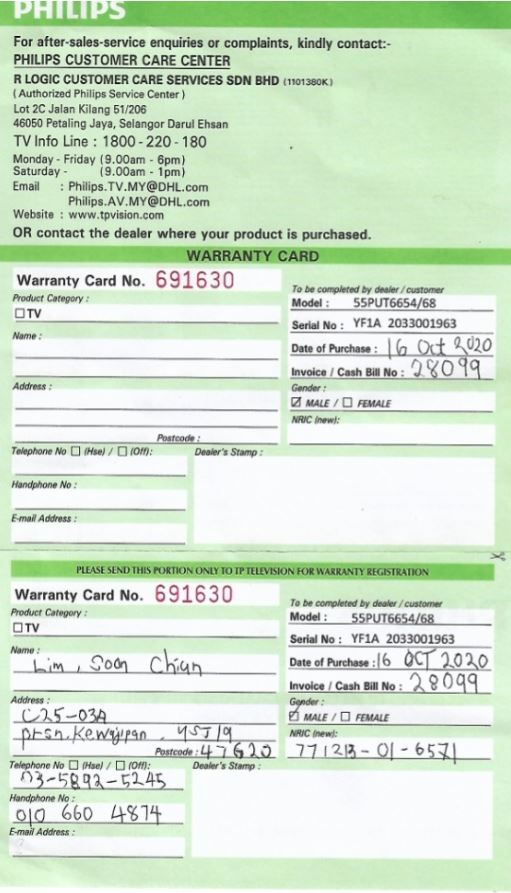 PHILIPS
For after-sales-service enquiries or complaints, kindly contact:-
PHILIPS CUSTOMER CARE CENTER
R LOGIC CUSTOMER CARE SERVICES SDN BHD (1101380K)
( Authorized Philips Service Center )
Lot 2C Jalan Kilang 51/206
46050 Petaling Jaya, Selangor Darul Ehsan
TV Info Line : 1800 - 220 - 180
Monday - Friday (9.00am - 6pm)
Saturday - (9.00am - 1pm)
Email : Philips.TV.MY@DHL.com
Philips.AV.MY@DHL.com
Website : www.tpvision.com
OR contact the dealer where your product is purchased.
WARRANTY CARD
Warranty Card No. 691630
Product Category :
☐ TV
Name :
Address :
Postcode :
Telephone No ☐ (Hse) / ☐ (Off):
Handphone No :
E-mail Address :
To be completed by dealer / customer
Model : 55PUT6654/68
Serial No : YF1A 2033001963
Date of Purchase : 16 Oct 2020
Invoice / Cash Bill No : 28099
Gender :
☑ MALE / ☐ FEMALE
NRIC (new):
Dealer's Stamp :
PLEASE SEND THIS PORTION ONLY TO TP TELEVISION FOR WARRANTY REGISTRATION
Warranty Card No. 691630
Product Category :
☐ TV
Name :
Lim, Soon Chian
Address :
C25-03A
prsn. Kewajipan, YSJ19
Postcode : 47620
Telephone No ☐ (Hse) / ☐ (Off):
03-5892-5245
Handphone No :
010 660 4874
E-mail Address :
To be completed by dealer / customer
Model : 55PUT6654/68
Serial No : YF1A 2033001963
Date of Purchase : 16 OCT 2020
Invoice / Cash Bill No : 28099
Gender :
☑ MALE / ☐ FEMALE
NRIC (new):
771213-01-6571
Dealer's Stamp :